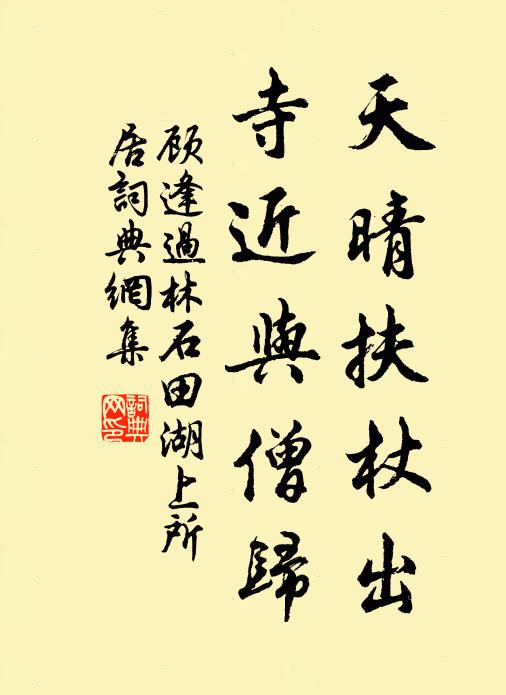 天晴扶杖出
寺近與僧歸
顧逢過林石田湖上所
居詞典網集
詞典
网印